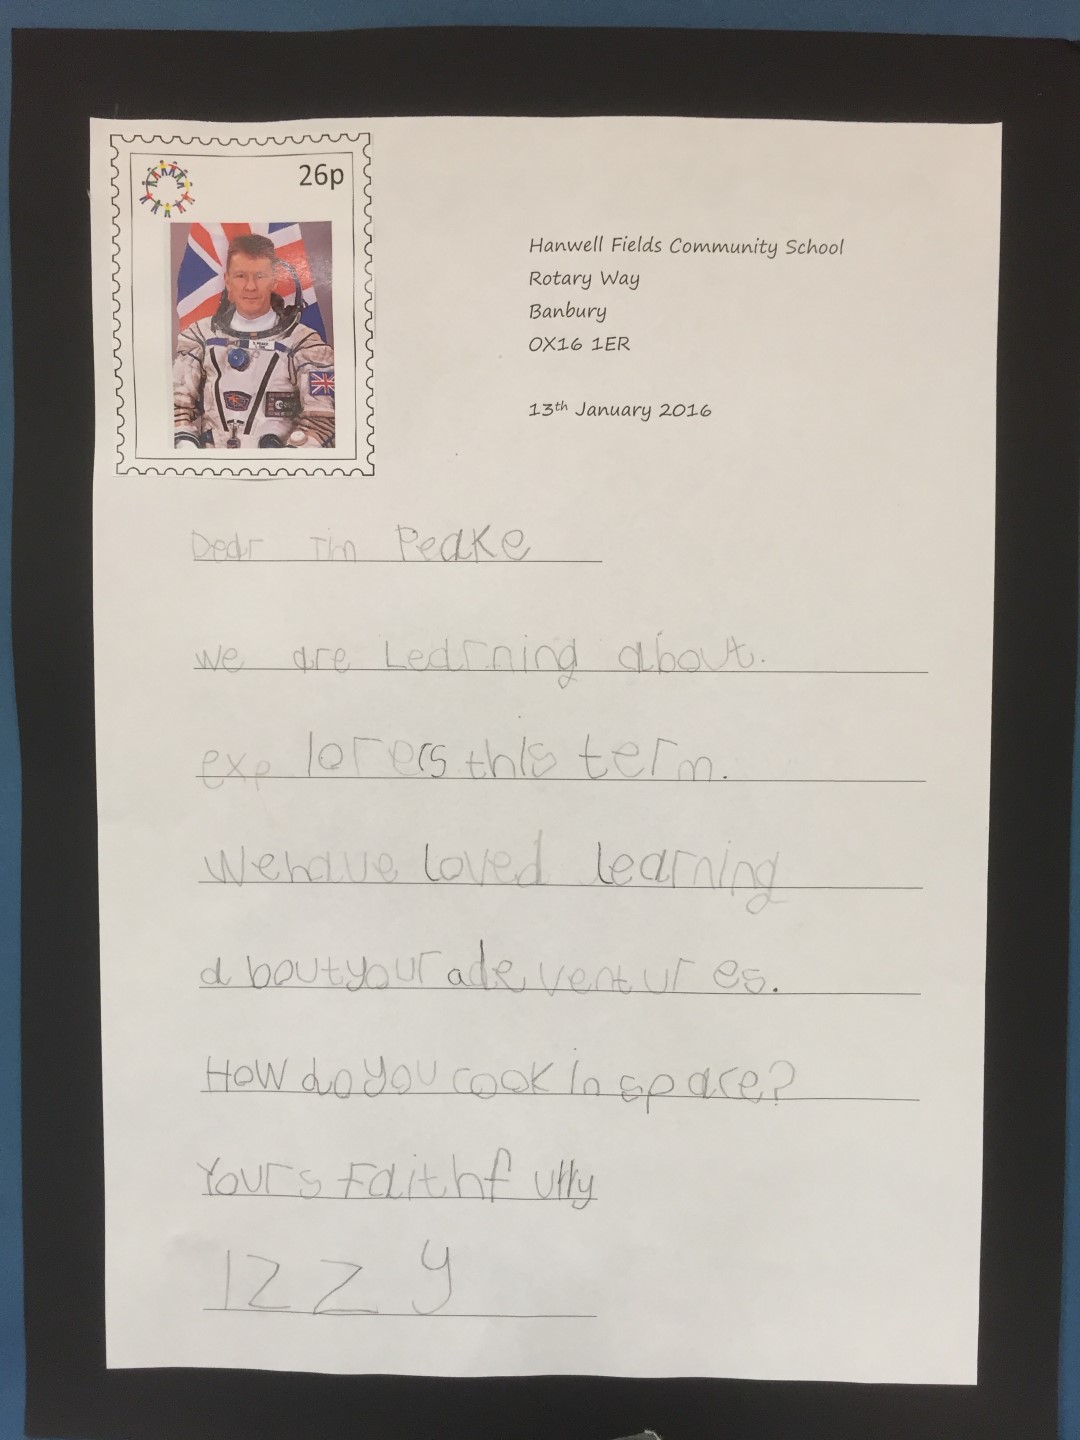 26p
Hanwell Fields Community School
Rotary Way
Banbury
OX16 1ER
13th January 2016
Dear Tim Peake
We are Learning about.
explorers this term.
We have loved learning
about your adeventures.
How do you cook in space?
Yours Faithfully
Izzy